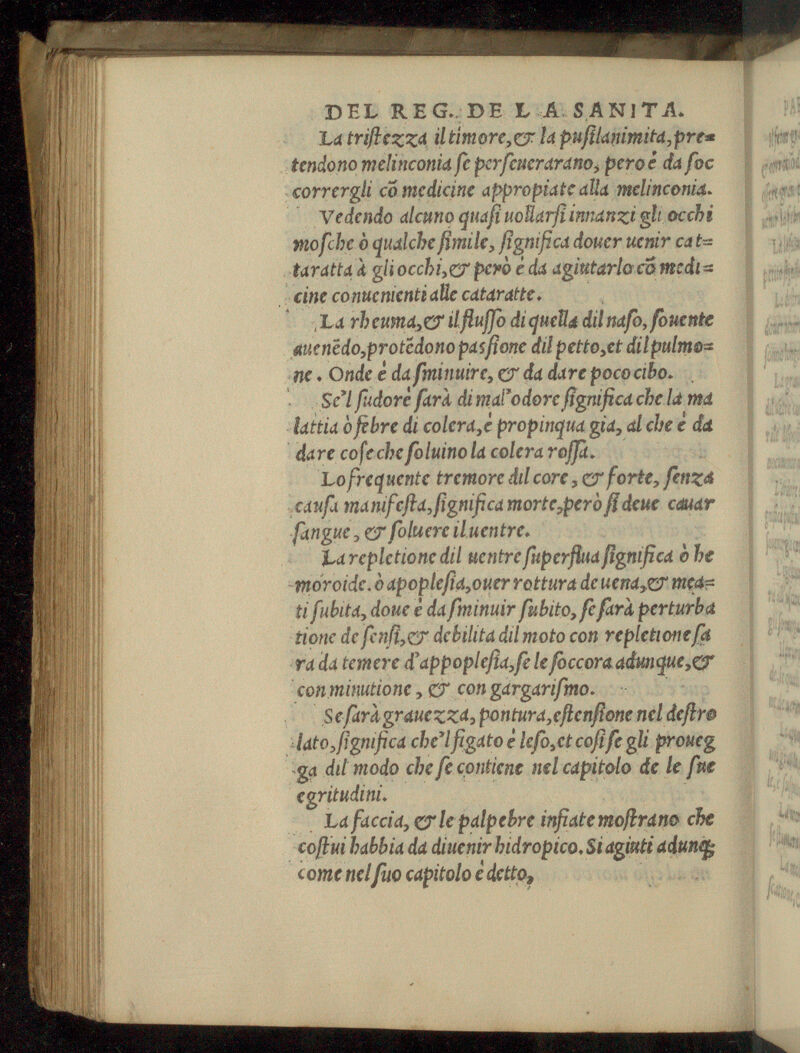 DEL REG. DE LA SANITA.
La triſtezza il timore,& la puſilanimita, pre=
tendono melinconia ſe perſeuerarano, pero é da ſoc
corrergli cõ medicine appropiate alla melinconia.
Vedendo alcuno quaſi uollarſi innanzi gli occhi
moſche ò qualche ſimile, ſignifica douer uenir cat=
taratta à gli occhi,& però é da agiutarlo cõ medi=
cine conuenienti alle cataratte.
La rheuma,& il fluſſo di quella dil naſo, ſouente
auenẽdo,protẽdono pasſione dil petto,et dil pulmo=
ne. Onde é da ſminuire, & da dare poco cibo.
Se'l ſudore ſarà di mal'odore ſignifica che la ma
lattia ò febre di colera,é propinqua gia, al che é da
dare coſe che ſoluino la colera roſſa.
Lo frequente tremore dil core, & forte, ſenza
cauſa manifeſta,ſignifica morte,però ſi deue cauar
ſangue, & ſoluere il uentre.
La repletione dil uentre ſuperflua ſignifica ò he
moroide. ò apopleſia,ouer rottura de uena,& mea=
ti ſubita, doue é da ſminuir ſubito, ſe ſarà perturba
tione de ſenſi,& debilita dil moto con repletione ſa
ra da temere d'appopleſia,ſe le ſoccora adunque,&
con minutione, & con gargariſmo.
Se ſarà grauezza, pontura,eſtenſione nel deſtro
lato,ſignifica che'l figato é leſo,et coſi ſe gli proueg
ga dil modo che ſe contiene nel capitolo de le ſue
egritudini.
La faccia, & le palpebre infiate moſtrano che
coſtui habbia da diuenir hidropico. Si agiuti adunq;
come nel ſuo capitolo é detto,